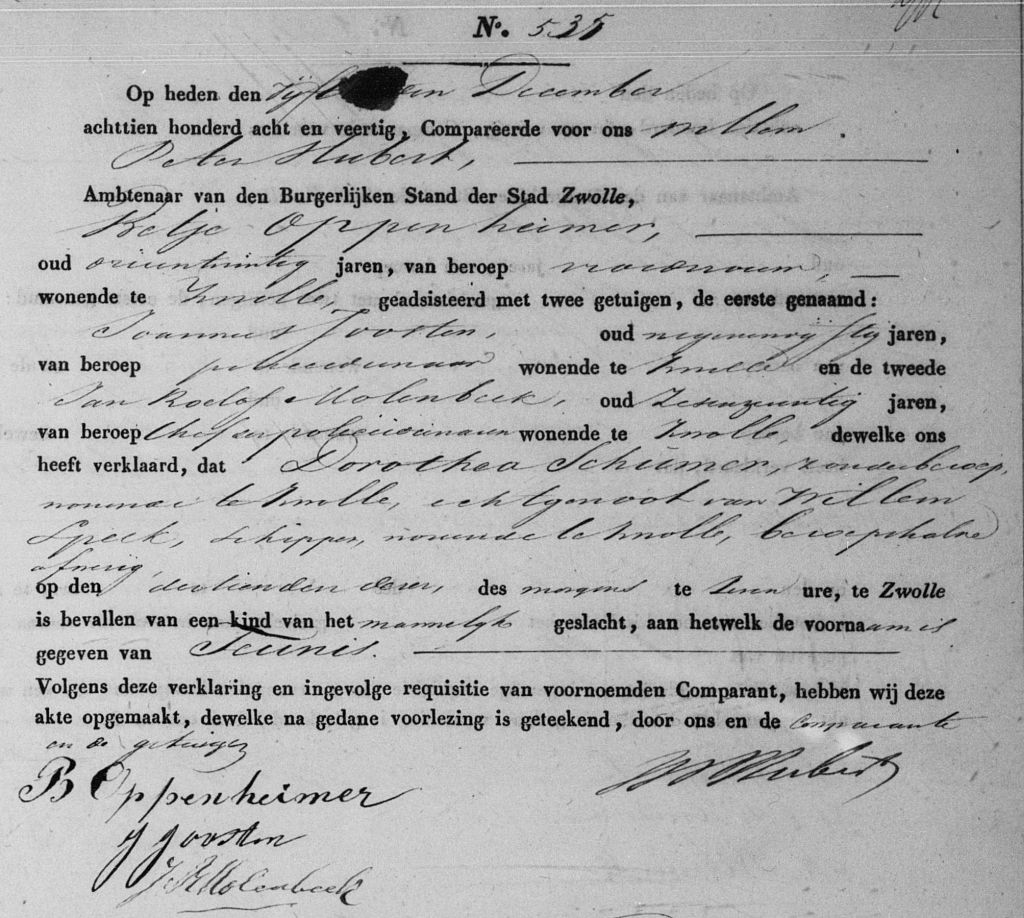 N°. 535
Op heden den December
achttien honderd acht en veertig, Compareerde voor ons Willem
Peter Hubert,
Ambtenaar van den Burgerlijken Stand der Stad Zwolle,
Betje Oppenheimer,
oud drieentwintig jaren, van beroep vroedvrouw,
wonende te Zwolle, geadsisteerd met twee getuigen, de eerste genaamd:
Joannes Joosten, oud negenenvyftig jaren,
van beroep policiedienaar wonende te Zwolle en de tweede
Jan Roelof Molenbeek, oud zesenzeventig jaren,
van beroep Chef der policiedienaren wonende te Zwolle dewelke ons
heeft verklaard, dat Dorothea Schirmer, zonder beroep,
wonende te Zwolle, echtgenoot van Willem
Speek, schipper, wonende te Zwolle, beroepshalve
afwezig,
op den dertienden dezer, des morgens te zeven ure, te Zwolle
is bevallen van een kind van het mannelyk geslacht, aan hetwelk de voornaam is
gegeven van Teunis.
Volgens deze verklaring en ingevolge requisitie van voornoemden Comparant, hebben wij deze
akte opgemaakt, dewelke na gedane voorlezing is geteekend, door ons en de Comparante
en de getuigen
W P Hubert
B Oppenheimer
J Joosten
J R Molenbeek